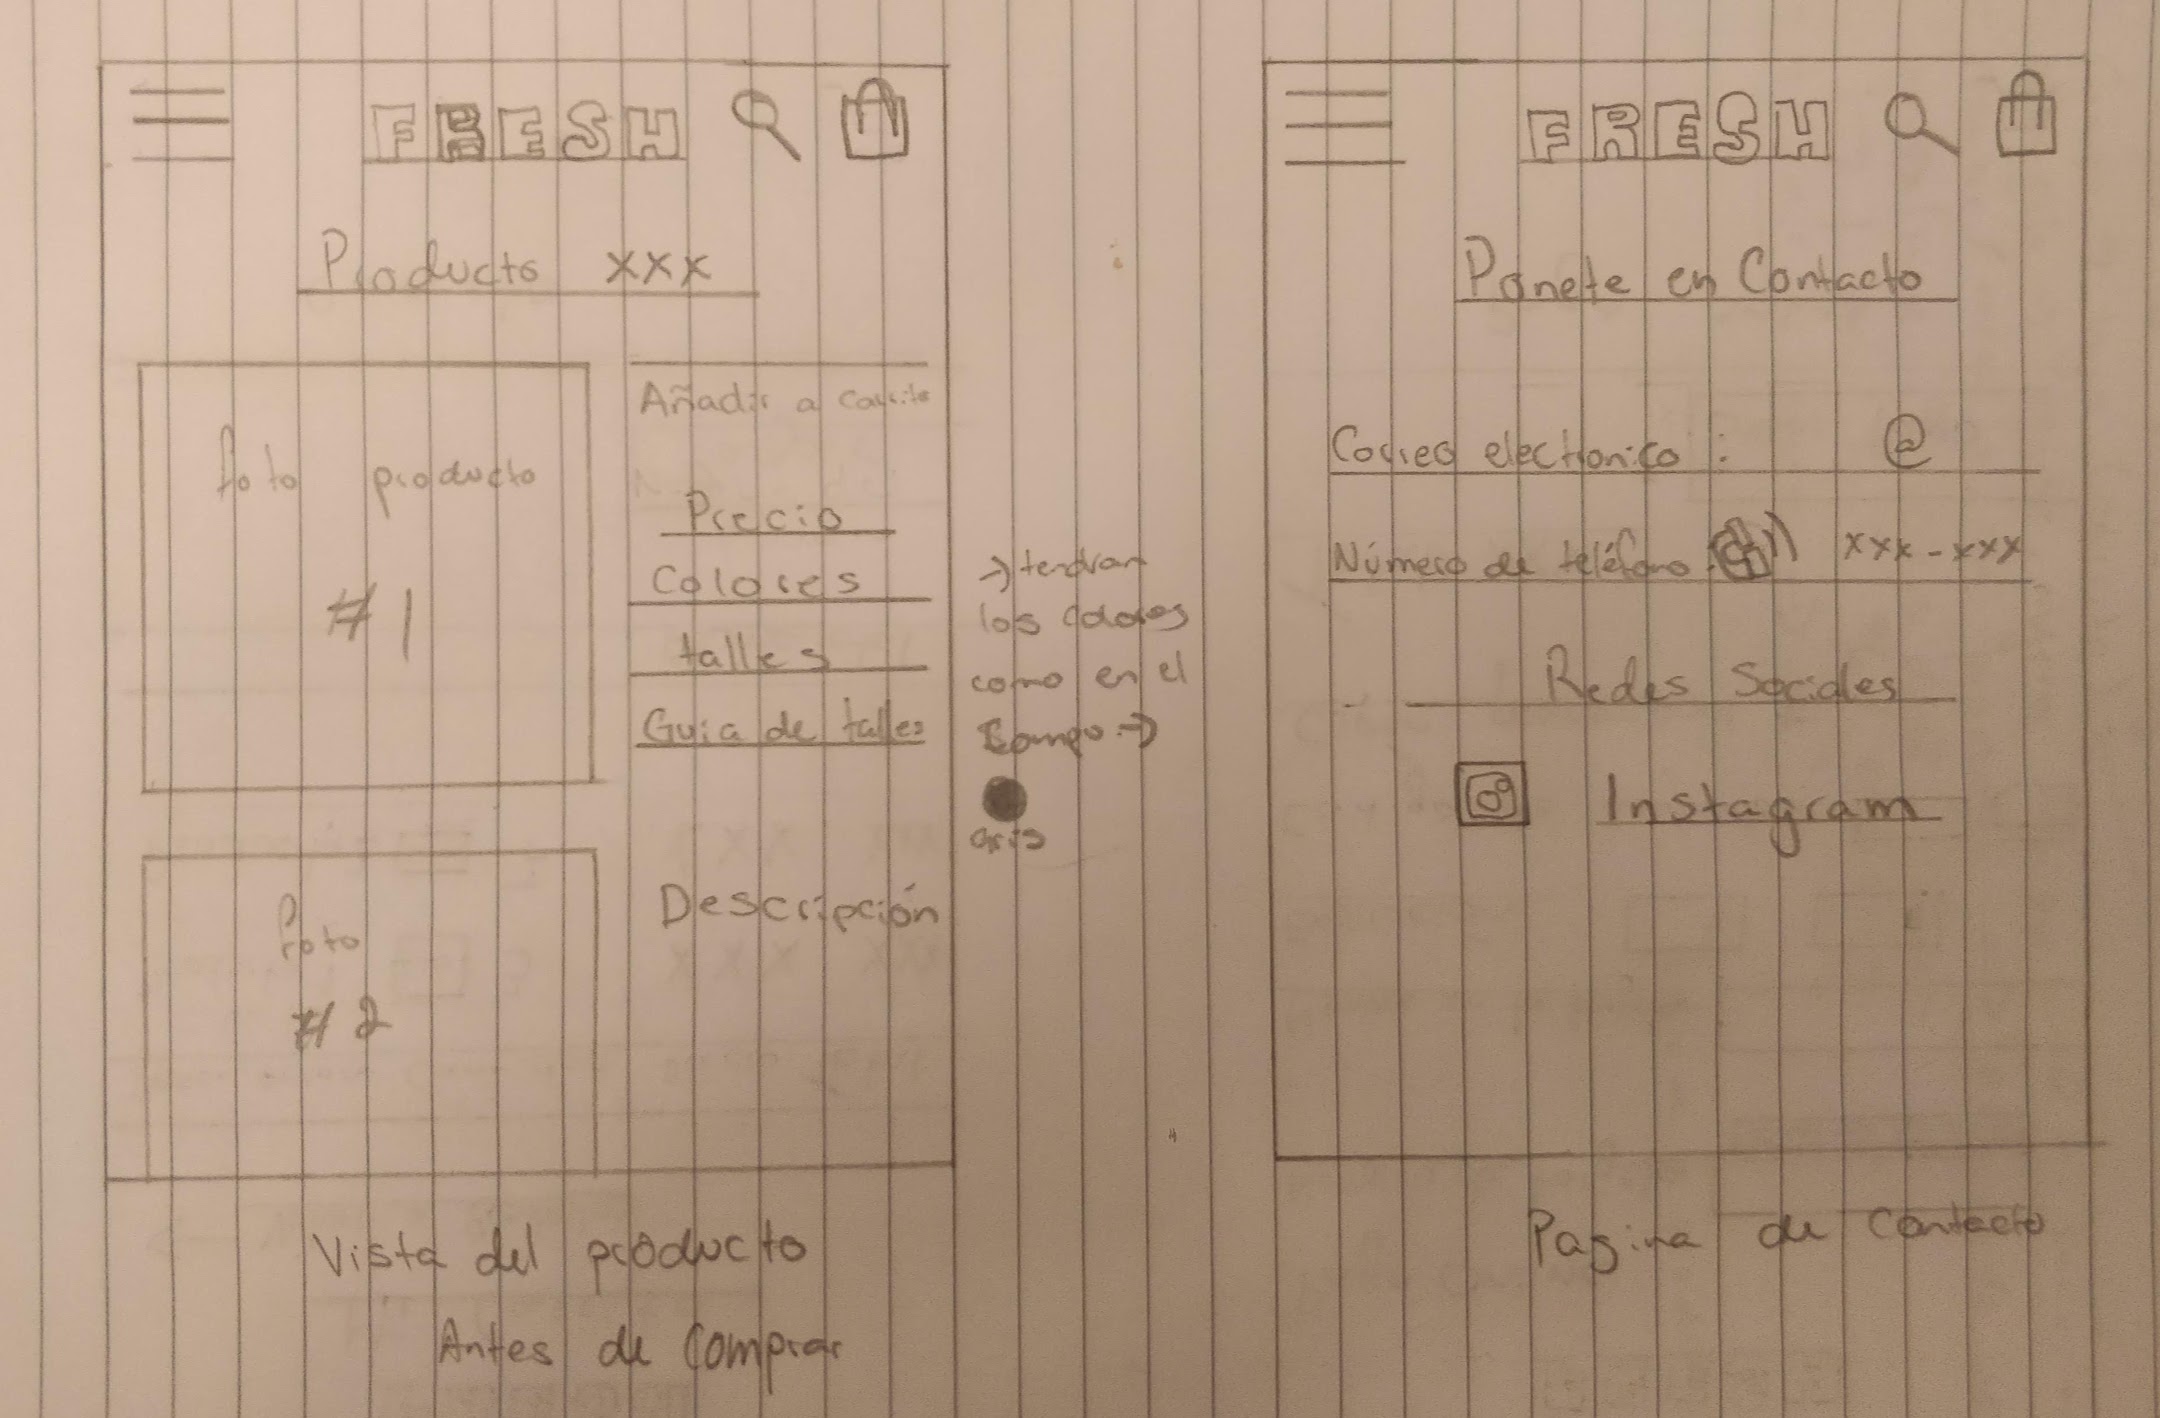 FRESH
Producto xxx
foto producto
#1
Añadir a carrito
Precio
Colores
talles
Guia de talles
foto
#2
Descripción
→ tendran
los colores
como en el
→
Gris
Vista del producto
Antes de Comprar
FRESH
Ponete en Contacto
Correo electronico : @
Número de teléfono xxx-xxx
Redes Sociales
Instagram
Pagina de Contacto